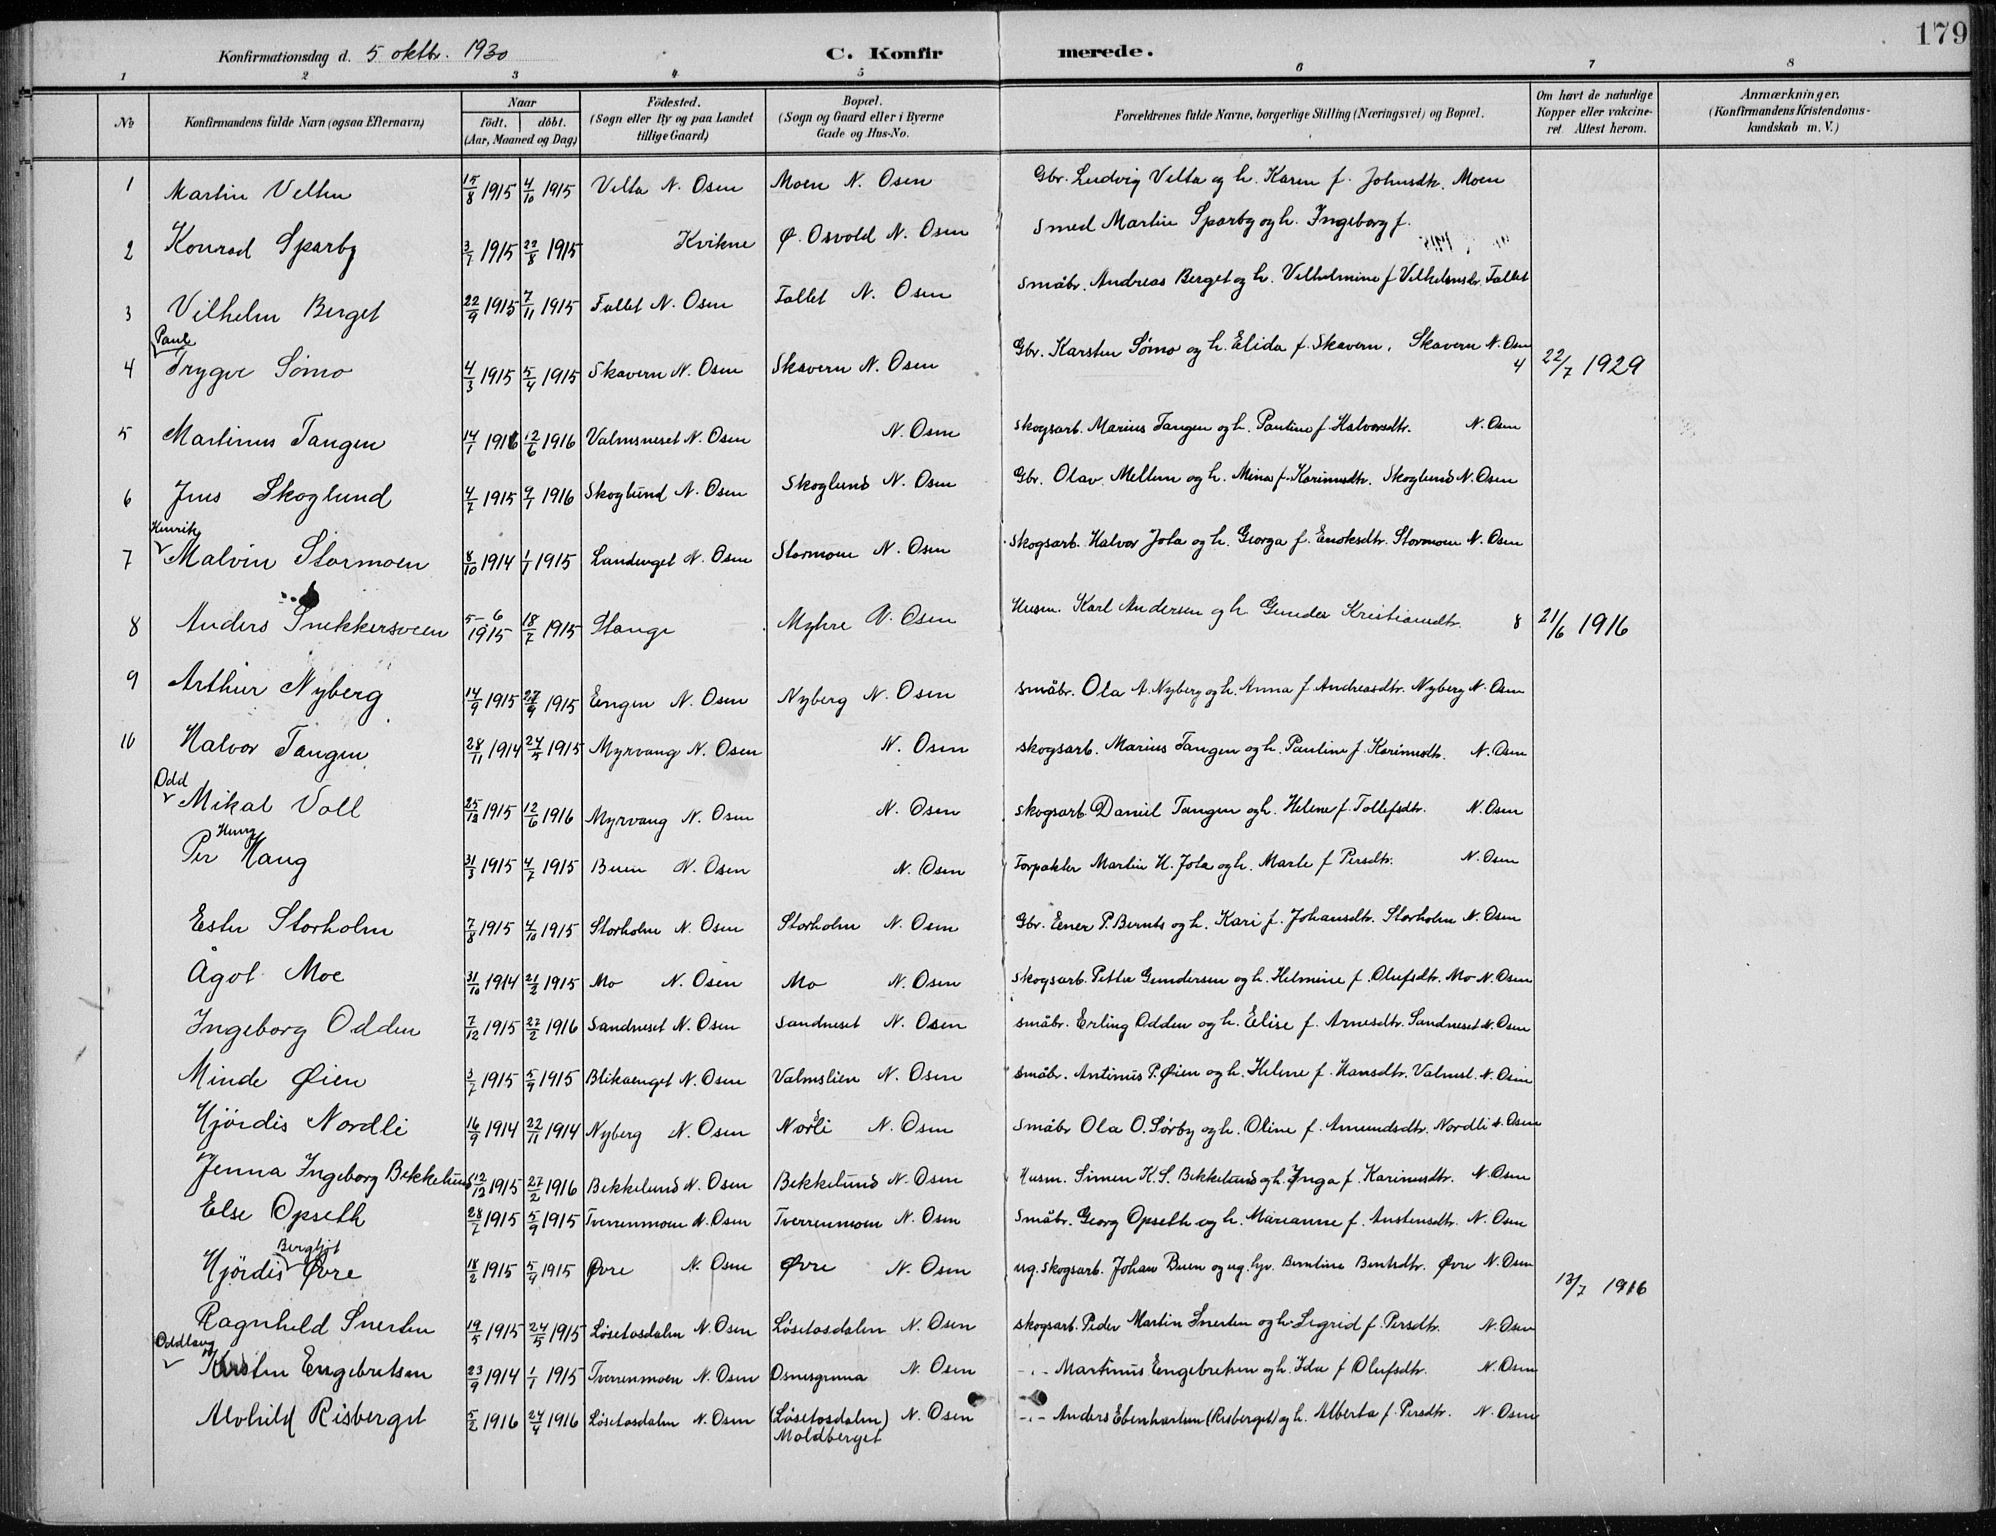 179
Konfirmationsdag d. 5 oktbr. 1930 C. Konfirmerede.
1 2 3 4 5 6 7 8
No Konfirmandens fulde Navn (ogsaa Efternavn) Naar födt. döbt. (Aar, Maaned og Dag) Födested. (Sogn eller By og paa Landet tillige Gaard) Bopæl. (Sogn og Gaard eller i Byerne Gade og Hus-No. Forældrenes fulde Navne, borgerlige Stilling (Næringsvei) og Bopæl. Om havt de naturlige Kopper eller vakcineret. Attest herom. Anmærkninger. (Konfirmandens Kristendomskundskab m. V.)
1 Martin Velta 15/8 1915 4/10 1915 Velta N. Osen Moen N. Osen Gbr. Ludvig Velta og h. Karen f. Johnsdtr. Moen
2 Konrad Sparby 3/7 1915 22/8 1915 Kvikne Ø. Osvold N. Osen Smed Martin Sparby og h. Ingeborg f.
3 Vilhelm Berget 22/9 1915 7/11 1915 Fallet N. Osen Fallet N. Osen Småbr. Andreas Berget og h. Vilhelmine f Vilhelmsdr. Fallet
4 Paul Trygve Sömo 4/3 1915 5/4 1915 Skavern N. Osen Skavern N. Osen Gbr. Karsten Sömo og h. Elida f. Skavern. Skavern N. Osen 4 22/7 1929
5 Martinus Tangen 14/1 1916 12/6 1916 Valmsneset N. Osen N. Osen skogsarb. Marius Tangen og h. Pauline f. Halvorsdtr. N. Osen
6 Jens Skoglund 4/7 1915 9/1 1916 Skoglund N. Osen Skoglund N. Osen Gbr. Olav Mellum og h. Mina f. Karinusdtr. Skoglund N. Osen
7 Henrik Malvin Stormoen 8/10 1914 1/1 1915 Landevget N. Osen Stormoen N. Osen skogsarb. Halvor Jota og h. Georga f. Enoksdtr. Stormoen N. Osen
8 Anders Snekkersveen 5-6 1915 18/7 1915 Stange Myhre N. Osen Husm. Karl Andersen og h. Gunda Kristiansdtr. 8 21/6 1916
9 Arthur Nyberg 14/9 1915 27/9 1915 Engen N. Osen Nyberg N. Osen småbr. Ola A. Nyberg og h. Anna f Andreasdtr. Nyberg N. Osen
10 Halvor Tangen 28/11 1914 24/5 1915 Myrvang N. Osen N. Osen skogsarb. Marius Tangen og h. Pauline f. Karinusdtr. N. Osen
Odd Mikal Voll 25/12 1915 12/6 1916 Myrvang N. Osen N. Osen skogsarb. Daniel Tangen og h. Helene f. Tollefsdtr. N. Osen
Per Henry Haug 31/3 1915 4/7 1915 Buen N. Osen N. Osen Forpakter Martin H. Jota og h. Marte f Persdtr. N. Osen
Ester Storholm 7/8 1915 4/10 1915 Storholm N. Osen Storholm N. Osen Gbr. Ener P. Bernts og h. Kari f. Johansdtr. Storholm N. Osen
Ågot Moe 31/10 1914 21/2 1915 Mo N. Osen Mo N. Osen skogsarb. Petter Gundersen og h. Helmine f. Olufsdtr. Mo N. Osen
Ingeborg Odden 7/12 1915 27/2 1916 Sandneset N. Osen Sandneset N. Osen småbr. Erling Odden og h. Elise f. Arnesdtr. Sandneset N. Osen
Minde Øien 3/7 1915 5/9 1915 Blikaenget N. Osen Valmslien N. Osen småbr. Antinus P. Øien og h. Helene f. Hansdtr. Valmsl. N. Osen
Hjördis Nordli 16/9 1914 22/11 1914 Nyberg N. Osen Nordli N. Osen Småbr Ola O. Sörby og h. Oline f. Amundsdtr. Nordli N. Osen
Jenna Ingeborg Bekkelund 12/12 1915 27/2 1916 Bekkelund N. Osen Bekkelund N. Osen Husm. Simen K. S. Bekkelund og h. Inga f. Karinusdtr. N. Osen
Else Opseth 28/7 1915 5/9 1915 Tverrenmoen N. Osen Tverrenmoen N. Osen Småbr. Georg Opseth og h. Marianne f. Austensdtr. N. Osen
Hjördis Bergljot Øvre 18/2 1915 5/4 1915 Øvre N. Osen Øvre N. Osen ug. skogsarb. Johan Buen og ug. hjv. Berntine Berntsdtr. Øvre N. Osen 13/7 1916
Ragnhild Snerten 19/5 1915 24/5 1915 Lösetosdalen N. Osen Lösetosdalen N. Osen skogsarb. Peder Martin Snerten og h. Sigrid f. Persdtr. N. Osen
Oddlaug Kirsten Engebretsen 23/9 1914 1/1 1915 Tverrenmoen N. Osen Osnesgrinna N. Osen -"- Martinus Engebretsen og h. Ida f Olufsdtr. N. Osen
Alvhild Risberget 5/2 1916 24/4 1916 Lösetosdalen N. Osen (Lösetosdalen) Moldberget N. Osen -"- Anders Ebenhartsen (Risberget) og h. Alberta f. Persdtr. N. Osen